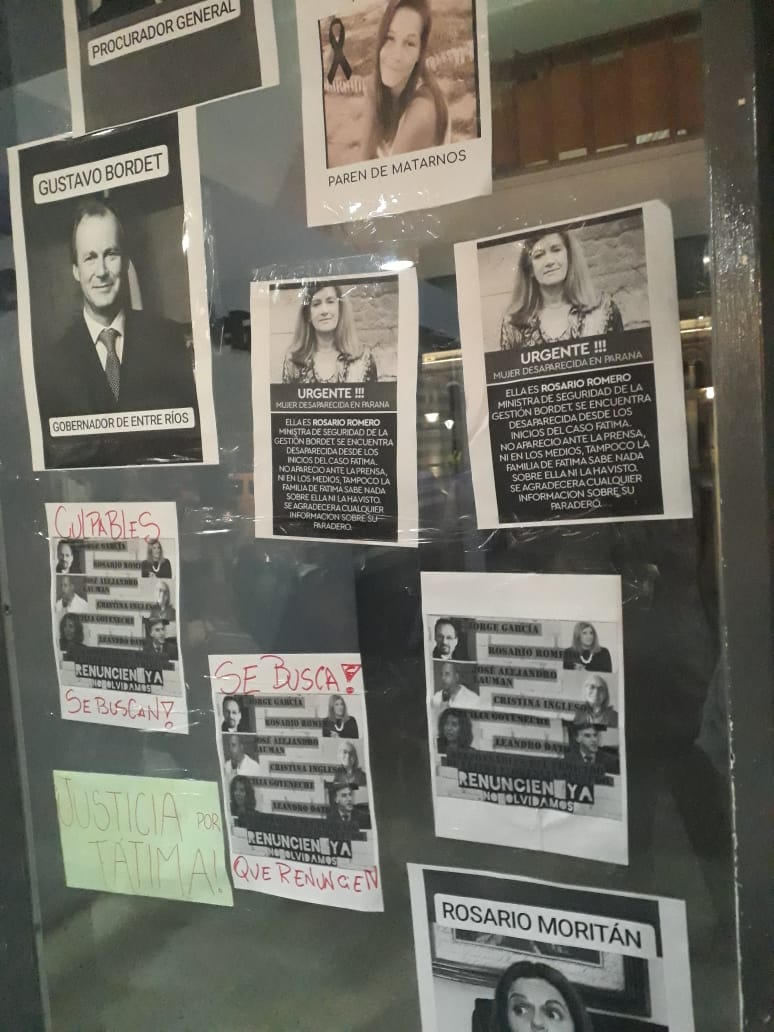 PROCURADOR GENERAL
PAREN DE MATARNOS
GUSTAVO BORDET
GOBERNADOR DE ENTRE RÍOS
URGENTE !!!
MUJER DESAPARECIDA EN PARANA
ELLA ES ROSARIO ROMERO
MINISTRA DE SEGURIDAD DE LA
GESTIÓN BORDET. SE ENCUENTRA
DESAPARECIDA DESDE LOS
INICIOS DEL CASO FATIMA.
NO APARECIO ANTE LA PRENSA,
NI EN LOS MEDIOS, TAMPOCO LA
FAMILIA DE FATIMA SABE NADA
SOBRE ELLA NI LA HA VISTO.
SE AGRADECERA CUALQUIER
INFORMACION SOBRE SU
PARADERO.
URGENTE !!!
MUJER DESAPARECIDA EN PARANA
ELLA ES ROSARIO ROMERO
MINISTRA DE SEGURIDAD DE LA
GESTIÓN BORDET. SE ENCUENTRA
DESAPARECIDA DESDE LOS
INICIOS DEL CASO FATIMA.
NO APARECIO ANTE LA PRENSA,
NI EN LOS MEDIOS, TAMPOCO LA
FAMILIA DE FATIMA SABE NADA
SOBRE ELLA NI LA HA VISTO.
SE AGRADECERA CUALQUIER
INFORMACION SOBRE SU
PARADERO.
CULPABLES
JORGE GARCÍA
ROSARIO ROME
JOSÉ ALEJANDRO
LAUMAN
CRISTINA INGLES
ILIA GOYENECHE
LEANDRO DATO
RENUNCIEN YA
NO OLVIDAMOS
SE BUSCAN!
SE BUSCA!
JORGE GARCÍA
ROSARIO ROMER
JOSÉ ALEJANDRO
LAUMAN
CRISTINA INGLES
ILIA GOYENECHE
LEANDRO DATO
RENUNCIEN YA
NO OLVIDAMOS
QUE RENUNCEN
JORGE GARCÍA
ROSARIO ROME
JOSÉ ALEJANDRO
LAUMAN
CRISTINA INGLES
ILIA GOYENECHE
LEANDRO DATO
RENUNCIEN YA
NO OLVIDAMOS
JUSTICIA POR
TÁTIMA!
ROSARIO MORITÁN